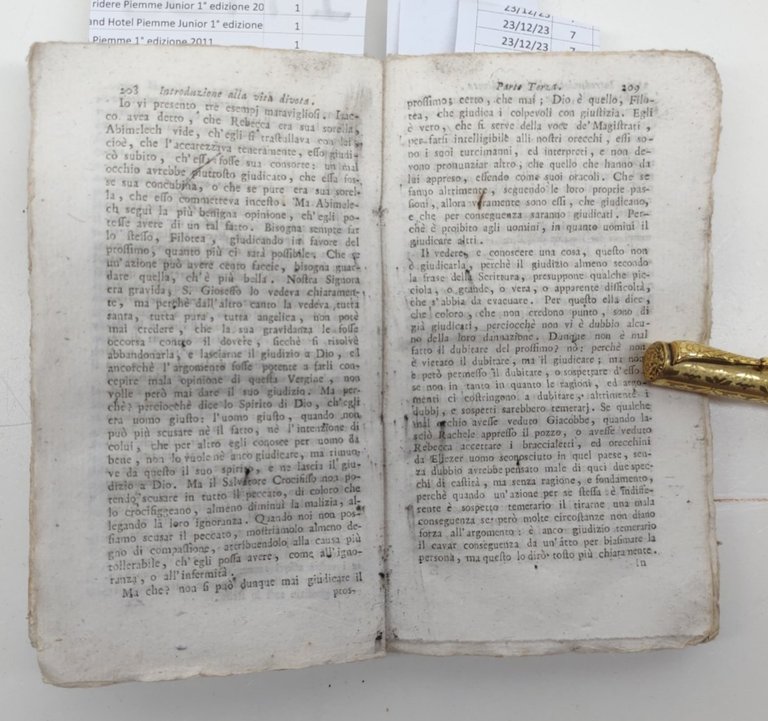 ridere Piemme Junior 1° edizione 20 1
and Hotel Piemme Junior 1° edizione 1
Piemme 1° edizione 2011 1
23/12/23
23/12/23 7
23/12/23 7
208 Introduzione alla vita divota.
Io vi presento tre esempj maravigliosi. Isac-
co avea detto, che Rebecca era sua sorella,
Abimelech vide, ch'egli si trastullava con lei,
cioè, che l'accarezzava teneramente, esso giudi-
cò subito, ch'essa fosse sua consorte: un mal
occhio avrebbe piutrosto giudicato, che essa fos-
se sua concubina, o che se pure era sua sorel-
la, che esso commetteva incesto. Ma Abimele-
ch seguì la più benigna opinione, ch'egli po-
tesse avere di un tal fatto. Bisogna sempre far
lo stesso, Filotea, giudicando in favore del
prossimo, quanto più ci sarà possibile. Che se
un'azione può avere cento faccie, bisogna guar-
dare quella, ch'è più bella. Nostra Signora
era gravida, S. Gioseffo lo vedeva chiaramen-
te, ma perchè dall'altro canto la vedeva tutta
santa, tutta pura, tutta angelica, non potè
mai credere, che la sua gravidanza le fosse
occorsa contro il dovere, sicchè si risolvè
abbandonarla, e lasciarne il giudizio a Dio, ed
ancorchè l'argomento fosse potente a farli con-
cepire mala opinione di questa Vergine, non
volle però mai dare il suo giudizio. Ma per-
chè? perciocchè dice lo Spirito di Dio, ch'egli
era uomo giusto: l'uomo giusto, quando non
può più scusare nè il fatto, nè l'intenzione di
colui, che per altro egli conosce per uomo da
bene, non lo vuole nè anco giudicare, ma rimuo-
ve da questo il suo spirito, e ne lascia il giu-
dizio a Dio. Ma il Salvatore Crocifisso non po-
tendo scusare in tutto il peccato, di coloro che
lo crocifiggeano, almeno diminuì la malizia, al-
legando la loro ignoranza. Quando noi non pos-
siamo scusare il peccato, mostriamolo almeno de-
gno di compassione, attribuendolo alla causa più
tollerabile, ch'egli possa avere, come all'igno-
ranza, o all'infermità.
Ma che? non si può dunque mai giudicare il
pros-
Parte Terza. 209
prossimo; certo, che mai; Dio è quello, Filo-
tea, che giudica i colpevoli con giustizia. Egli
è vero, che si serve della voce de' Magistrati,
per farsi intelligibile alli nostri orecchi, essi so-
no i suoi turcimanni, ed interpreti, e non de-
vono pronunziar altro; che quello che hanno da
lui appreso, essendo come suoi oracoli. Che se
fanno altrimente, seguendo le loro proprie pas-
sioni, allora veramente sono essi, che giudicano,
e che per conseguenza saranno giudicati. Per-
chè è proibito agli uomini, in quanto uomini il
giudicare altri.
Il vedere, e conoscere una cosa, questo non
è giudicarla, perchè il giudizio almeno secondo
la frase della Scrittura, presuppone qualche pic-
ciola, o grande, o vera, o apparente difficoltà,
che s'abbia da evacuare. Per questo ella dice,
che coloro, che non credono punto, sono di
già giudicati, perciocchè non vi è dubbio alcu-
no della loro dannazione. Dunque non è mal
fatto il dubitare del prossimo? nò: perchè non
è vietato il dubitare, ma il giudicare; ma non
è però permesso il dubitare, o sospettare d'esso,
se non in tanto in quanto le ragioni, ed argo-
menti ci costringono a dubitare, altrimente i
dubbj, e sospetti sarebbero temerarj. Se qualche
mal occhio avesse veduto Giacobbe, quando la-
sciò Rachele appresso il pozzo, o avesse veduto
Rebecca accettare i braccialetti, ed orecchini
da Eliezer uomo sconosciuto in quel paese, sen-
za dubbio avrebbe pensato male di quei due spec-
chi di castità, ma senza ragione, e fondamento,
perchè quando un'azione per se stessa è indiffe-
rente è sospetto temerario il tirarne una mala
conseguenza se però molte circostanze non diano
forza all'argomento: è anco giudizio temerario
il cavar conseguenza da un'atto per biasimare la
persona, ma questo lo dirò tosto più chiaramente.
In